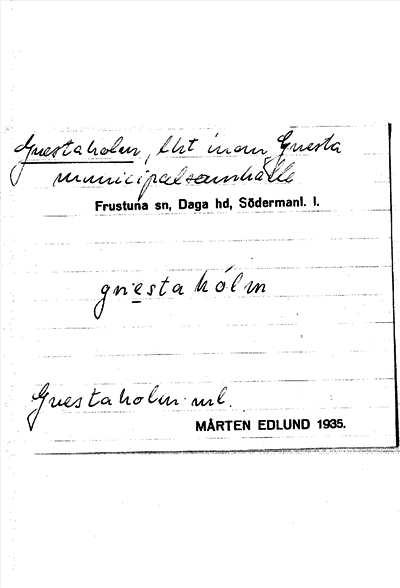 Gnestaholm, lht inom Gnesta
municipalsamhälle
Frustuna sn, Daga hd, Södermanl. l.
gnesta hólm
Gnestaholm ml.
MÅRTEN EDLUND 1935.